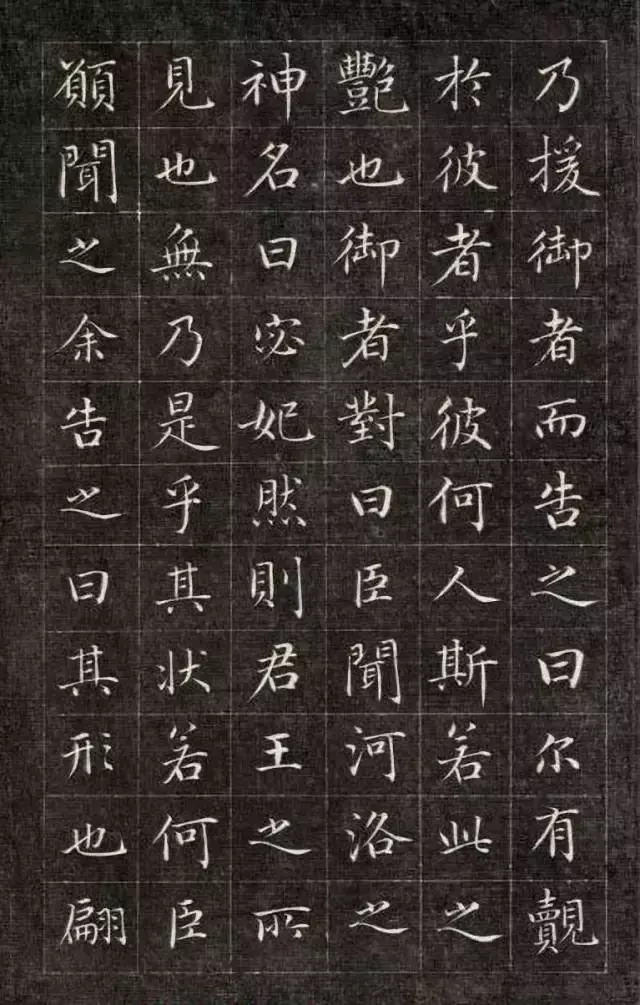 乃援御者而告之曰尔有覿
於彼者乎彼何人斯若此之
艷也御者對曰臣聞河洛之
神名曰宓妃然則君王之所
見也無乃是乎其状若何臣
願聞之余告之曰其形也翩